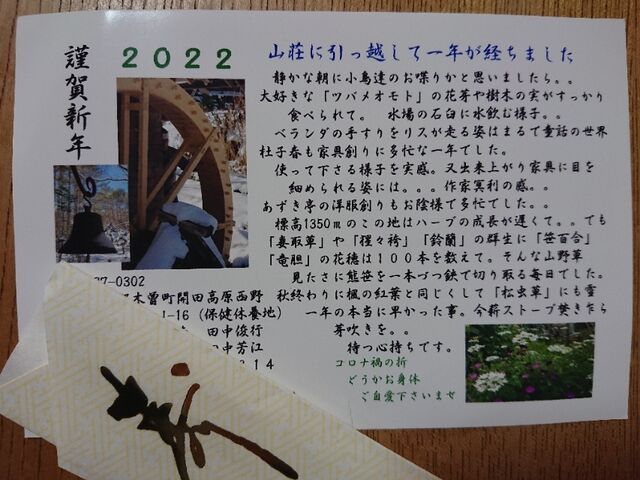 謹賀新年
2022
山荘に引っ越して一年が経ちました
静かな朝に小鳥達のお喋りかと思いましたら。。
大好きな「ツバメオモト」の花芽や樹木の実がすっかり
食べられて。 水場の石臼に水飲む様子。。
ベランダの手すりをリスが走る姿はまるで童話の世界
杜子春も家具創りに多忙な一年でした。
使って下さる様子を実感。又出来上がり家具に目を
細められる姿には。。。作家冥利の感。。
あずき亭の洋服創りもお陰様で多忙でした。。
標高1350mのこの地はハーブの成長が遅くて。。でも
「妻取草」や「猩々袴」「鈴蘭」の群生に「笹百合」
「竜胆」の花穂は100本を数えて。そんな山野草
見たさに熊笹を一本づつ鋏で切り取る毎日でした。
秋終わりに楓の紅葉と同じくして「松虫草」にも雪
一年の本当に早かった事。今薪ストーブ焚き乍ら
芽吹きを。。
待つ心持ちです。
コロナ禍の折
どうかお身体
ご自愛下さいませ
7-0302
木曽町開田高原西野
1-16(保健休養地)
田中俊行
田中芳江
814